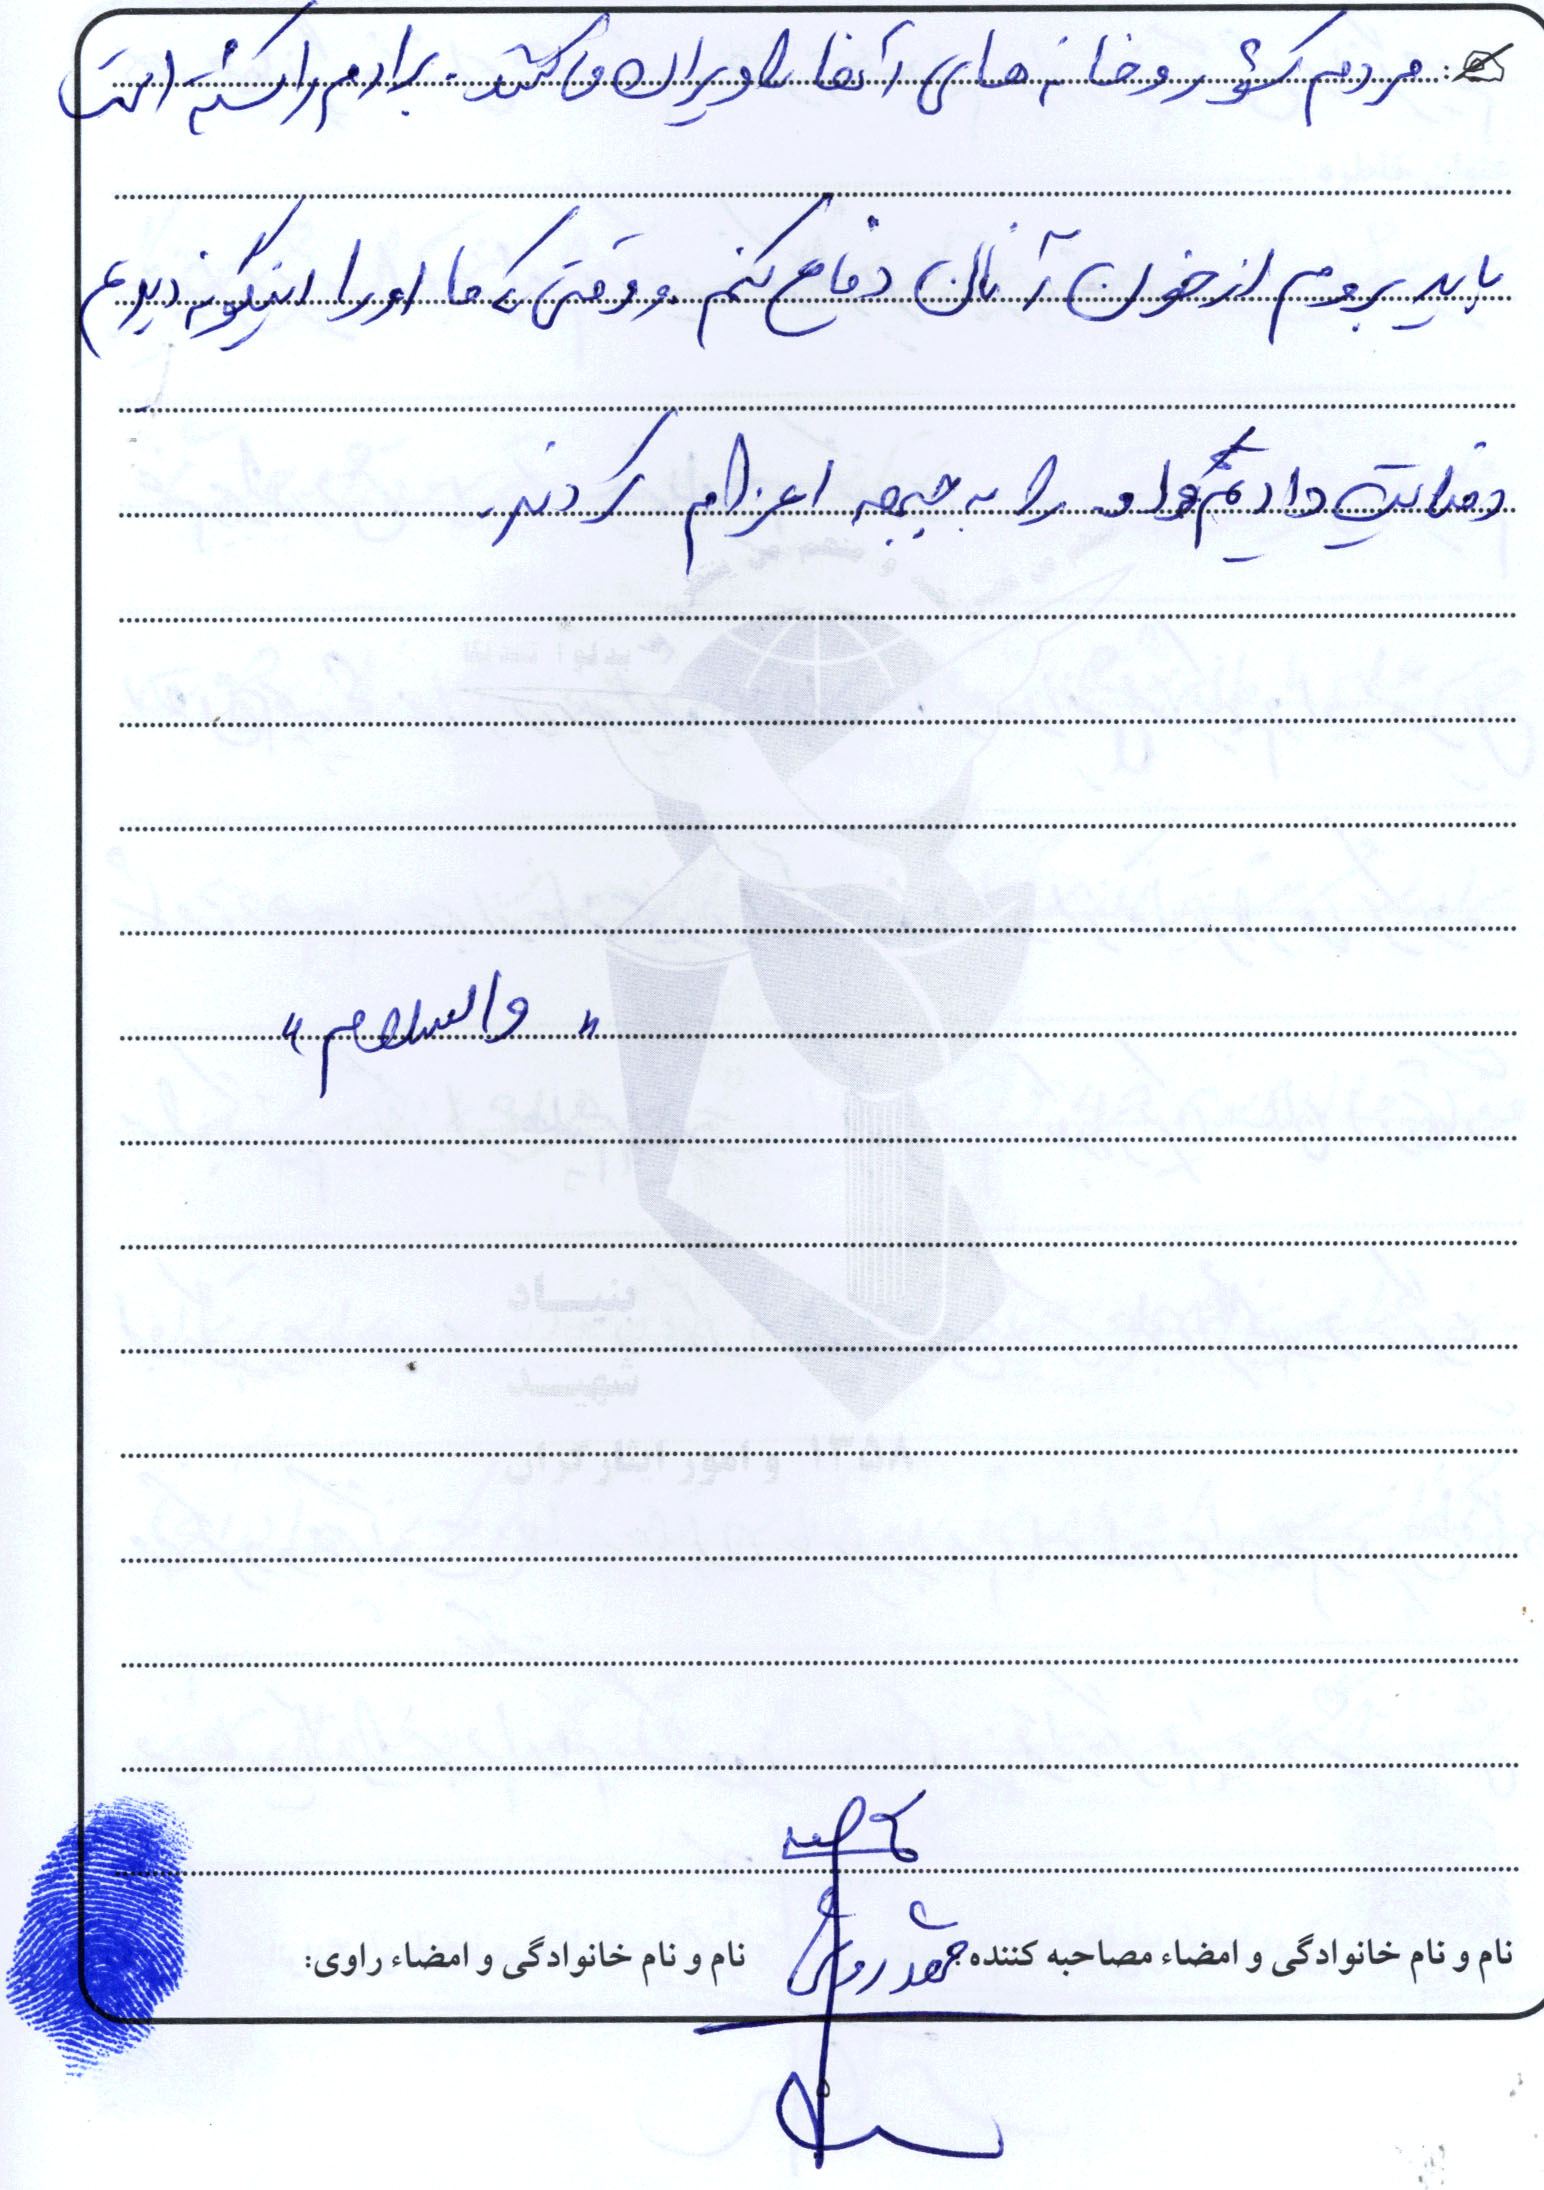 مردم کشور و خانه های آنها را ویران می کند. برادرم را کشته است
باید بروم از خون آنان دفاع کنم. و وقتی که ما او را اینگونه دیدیم
رضایت دادیم و او را به جبهه اعزام کردند.
" والسلام "
بنیاد
شهید
و امور ایثارگران ۱۳۵۸
نام و نام خانوادگی و امضاء مصاحبه کننده: نام و نام خانوادگی و امضاء راوی: